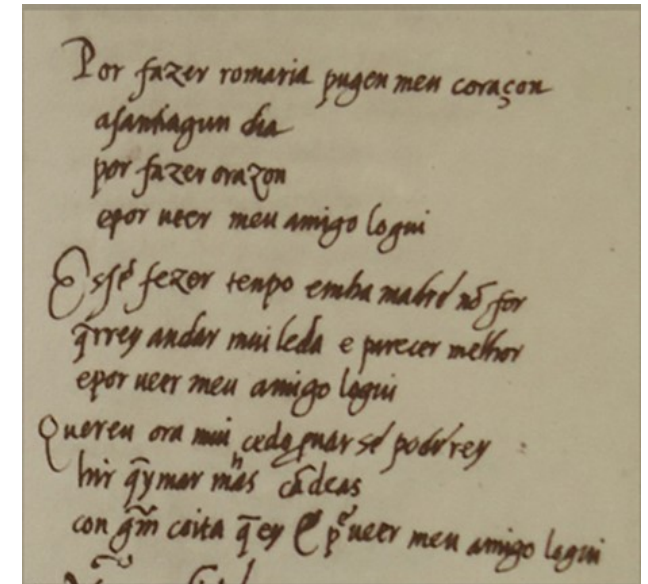 Por fazer romaria pugen meu coraçon
asanhagun dia
por fazer orazon
epor ueer meu amigo logui
Esse fezer tenpo emha madre nõ for
q̃rrey andar mui leda e parecer melhor
epor ueer meu amigo logui
Quereu ora mui cedo puar se poderey
hir q̃ymar mhas cãdeas
con g̃m coita q̃ ey e p ueer meu amigo logui